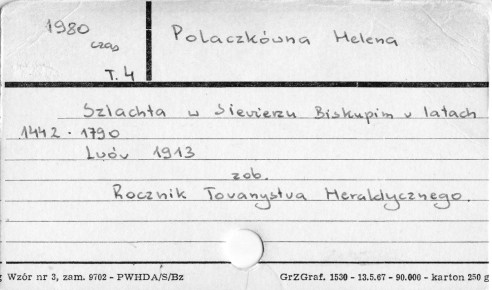 1980
czas
T. 4
Polaczkówna Helena
Szlachta w Siewierzu Biskupim w latach
1442 - 1790
Lwów 1913
zob.
Rocznik Towarzystwa Heraldycznego.
Wzór nr 3, zam. 9702 - PWHDA/S/Bz
GrZGraf. 1530 - 13.5.67 - 90.000 - karton 250 g